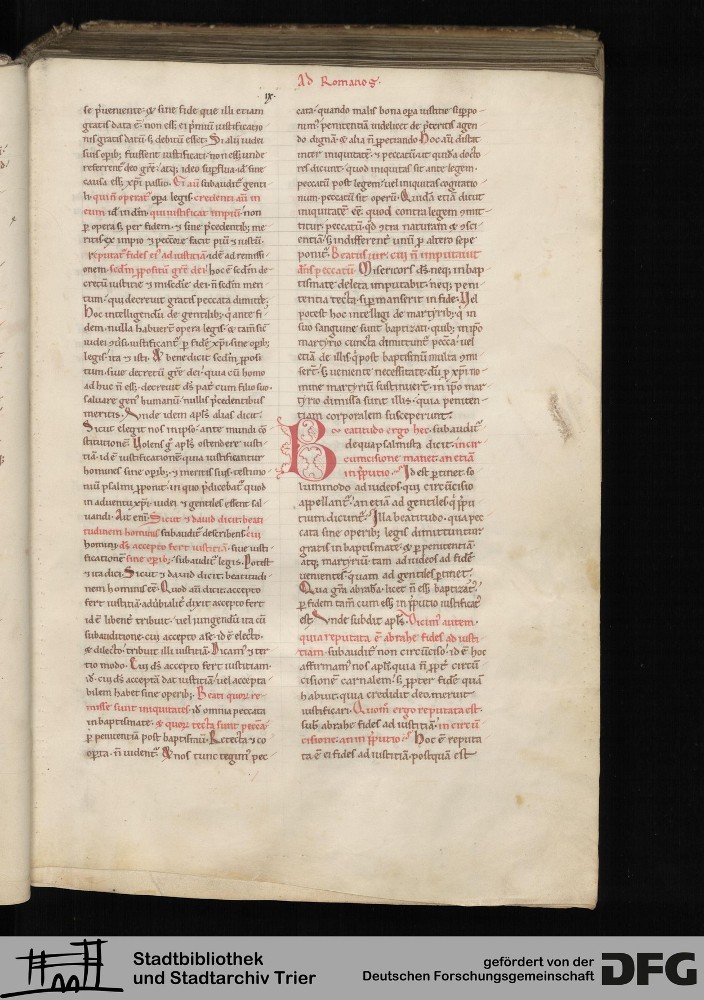 Ad Romanos.
ix.
se p̄ueniente. & sine fide que illi etiam
gratis data ē. non eſſ; ei p̄miū iustificatio
nis gratis datū. ſ; debitū esset. Si alii iudei
suis opib; fuissent iustificati. non eſſ; unde
referrent deo grē. atq; ideo supflua id sine
causa eſſ; xp̄i passio. Ei aū subaudit̄ genti
li. qui n̄ operat̄ opa legis. credenti aū in
eum id in dm̄. qui iustificat impiū. non
p opera ſ; per fidem. & sine p̄cedentib; me
ritis. ex impio & peccore facit piū & iustū.
reputat̄ fides ei ad iustitiā. idē ad remissi
onem. scdm̄ ppositū grē dei. hoc ē scdm̄ de
cretū iustitie & miscdie dei. n̄ scdm̄ meri
tum. qui decreuit gratis peccata dimitte;
Hoc intelligendū de gentilib; q̄ ante fi
dem. nulla habuert̄ opera legis. & tam̄ sic
iudei
legis. ita & isti. & benedicit scdm̄ pposi
tum. siue decretū grē dei. quia cū homo
ad huc n̄ eſſ; decreuit ds̄ pat̄ cum filio suo.
saluare gen̄ humanū. nullis p̄cedentibus
meritis. Unde idem apl̄s alias dicit.
Sicut elegit nos in ipso. ante mundi cō
stitutionē. Volens g̊ apl̄s ostendere iusti
tiā. id ē iustificationē. qua iustificantur
homines sine opib; & meritis suis. testimo
niū psalmi pponit. in quo p̄dicebat̄ quod
in aduentu xp̄i. iudei & gentiles essent sal
uandi. Ait enī. Sicut & dauid dicit. beati
tudinem hominis subaudit̄ describens. cui
homini ds̄ accepto fert iustitiā. siue iusti
ficationē sine opib; subaudit̄ legis. Potest
& ita dici. Sicut & dauid dicit beatitudi
nem hominis eē. Quod aū dicit. accepto
fert iustitiā. aduḃialit̄ dixit accepto fert
id ē libent̄ tribuit. uel iungendū ita cū
subauditione. cui accepto a se. id ē electo.
& dilecto. tribuit illi iustitiā. Dicam̄ & ter
tio modo. Cui ds̄ accepto fert iustitiam.
id. cui ds̄ acceptā dat iustitiā. uel accepta
bilem habet sine operib; Beati quor̄ re
misse sunt iniquitates. id omnia peccata
in baptismate. & quor̄ tecta sunt peccā.
p penitentiā post baptismū. Retecta & co
opta. n̄ uident̄. & nos tunc tegim̄ pec
cata. quando malis bona opa iustitie suppo
nim̄. penitentiā uidelicet de p̄teritis agen
do dignā. & alia n̄ ppetrando. Hoc aū distat
inter iniquitatē & peccatū. ut quidā docto
res dicunt. quod iniquitas sit ante legem.
peccatū post legem. uel iniquitas cogitatio
num. peccatū sit operū. Quidā etiā dicit
iniquitatē eē. quod contra legem ōmit
titur. peccatū. qd̄ ɔtra naturam & ɔsci
entiā. ſ; indifferent̄ unū p altero sepe
ponit̄. Beatus uir. cui n̄ imputauit
dn̄s peccatū. Misericors ds̄. neq; in bap
tismate deleta imputabit. neq; peni
tentia tecta. si pmanserit in fide. Uel
potest hoc intelligi de martyrib; q̄ in
suo sanguine sunt baptizati. quib; in ipo
martyrio cuncta dimittunt̄ peccā. uel
etiā de illis q̄ post baptismū multa ōmi
sert̄. ſ; ueniente necessitate. dū p xp̄i no
mine martyriū sustinuert̄. in ipō mar
tyrio dimissa sunt illis. quia peniten
tiam corporalem susceperunt.
Beatitudo ergo hec. subaudit̄
de qua psalmista dicit. in cir
cumcisione manet. an etiā
in p̄putio. Id est ptinet. so
lummodo ad iudeos. qui circūcisio
appellant̄. an etiā ad gentiles. q̄ p̄pu
tium dicunt̄. Illa beatitudo. qua pec
cata sine operib; legis dimittuntur
gratis in baptismate. & p penitentiā
atq; martyriū. tam ad iudeos ad fidē
uenientes. quam ad gentiles ptinet.
Qua grā abrahā. licet n̄ eſſ; baptizat̄.
p fidem tam̄ cum eſſ; in p̄putio iustificat̄
est. Unde subdit apl̄s. Dicim̄ autem.
quia reputata ē abrahe fides ad iusti
tiam. subaudit̄ non circūciso. id ē hoc
affirmam̄ nos apl̄i. quia n̄ ppt̄ circū
cisionē carnalem. ſ; ppter fidē quā
habuit. quia credidit deo. meruit
iustificari. Quom̄ ergo reputata est.
sub̄. abrahe fides ad iustitiā. in circū
cisione. an in p̄putio. Hoc ē reputa
ta ē ei fides ad iustitiā. postquā est
Stadtbibliothek
und Stadtarchiv Trier
gefördert von der
Deutschen Forschungsgemeinschaft
DFG